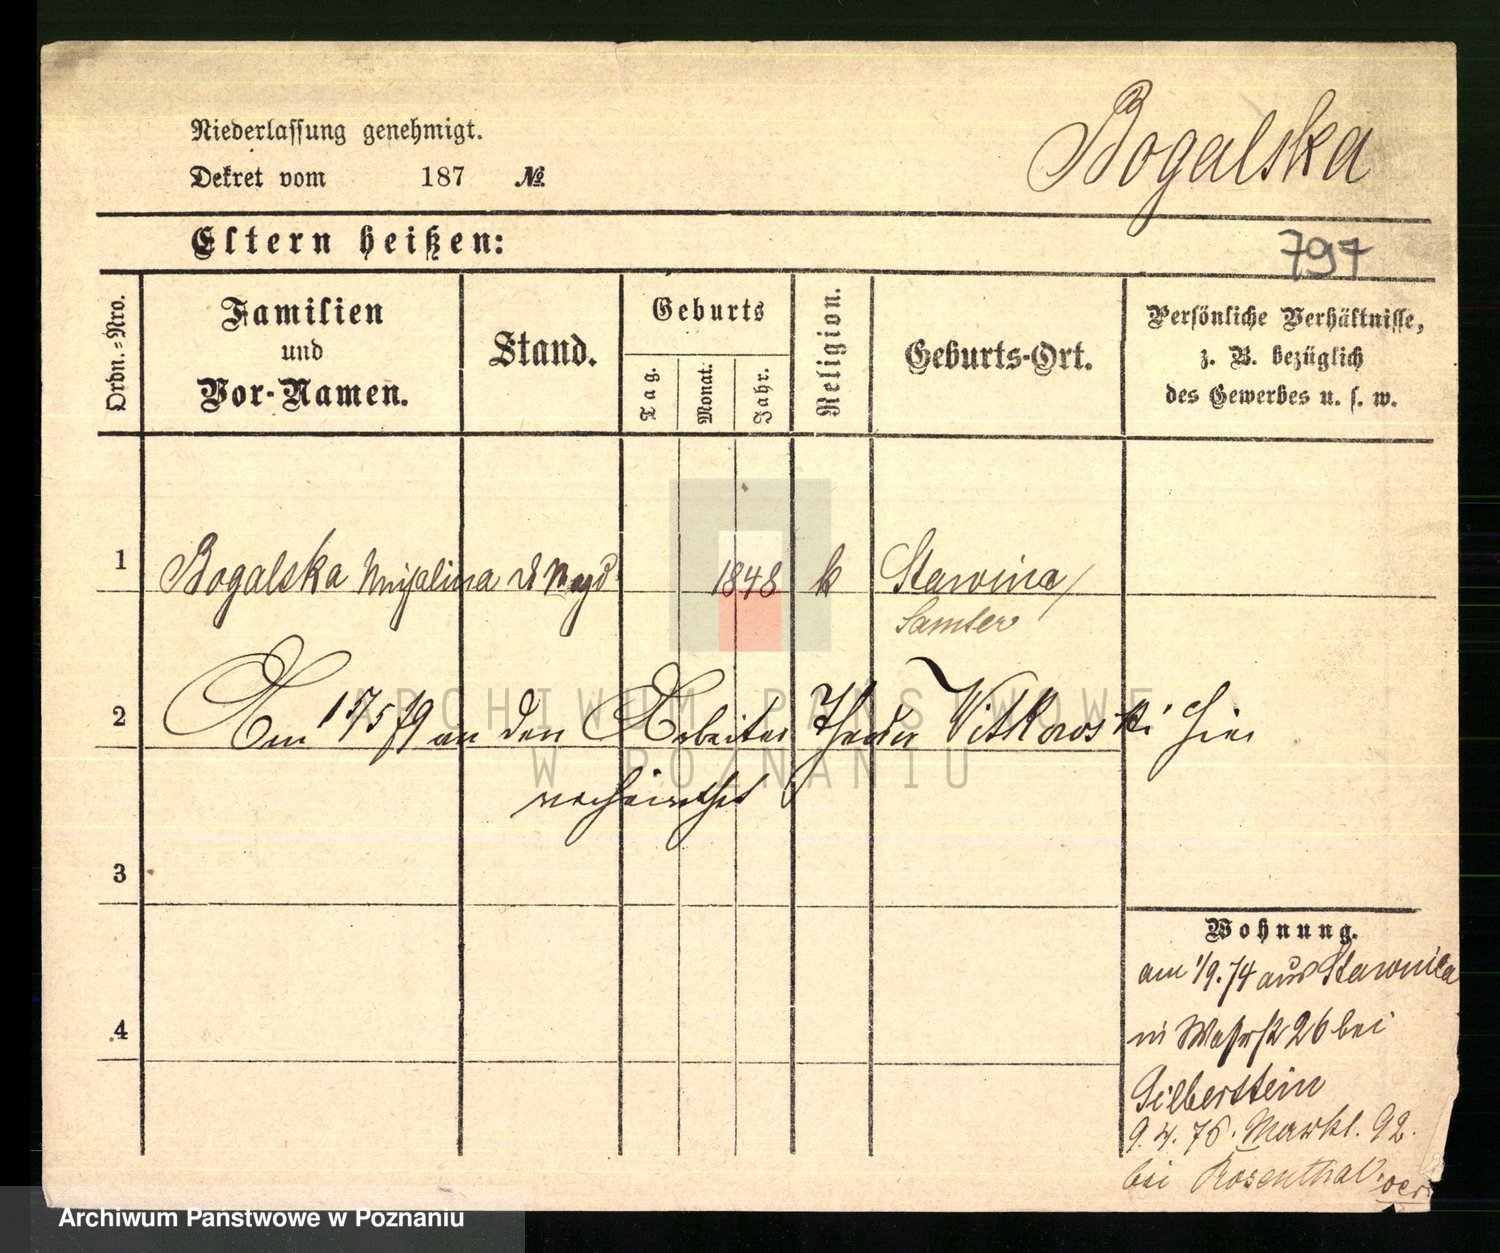 Niederlassung genehmigt.
Dekret vom 187 №
Bogalska
Eltern heißen:
797
Ordn.-Nro.
Familien
und
Vor-Namen.
Stand.
Geburts
Tag.
Monat.
Jahr.
Religion.
Geburts-Ort.
Persönliche Verhältnisse,
z. B. bezüglich
des Gewerbes u. s. w.
1 Bogalska 1848 k
Samter
2 Am 17/5 79 an den Arbeiter Vitkowski hier
verheirathet
3
4
Wohnung.
am 1/9.74 aus
in 26 bei
Silberstein
9.4.75. Markt. 92.
bei Rosenthal
ARCHIWUM PAŃSTWOWE
W POZNANIU
Archiwum Państwowe w Poznaniu